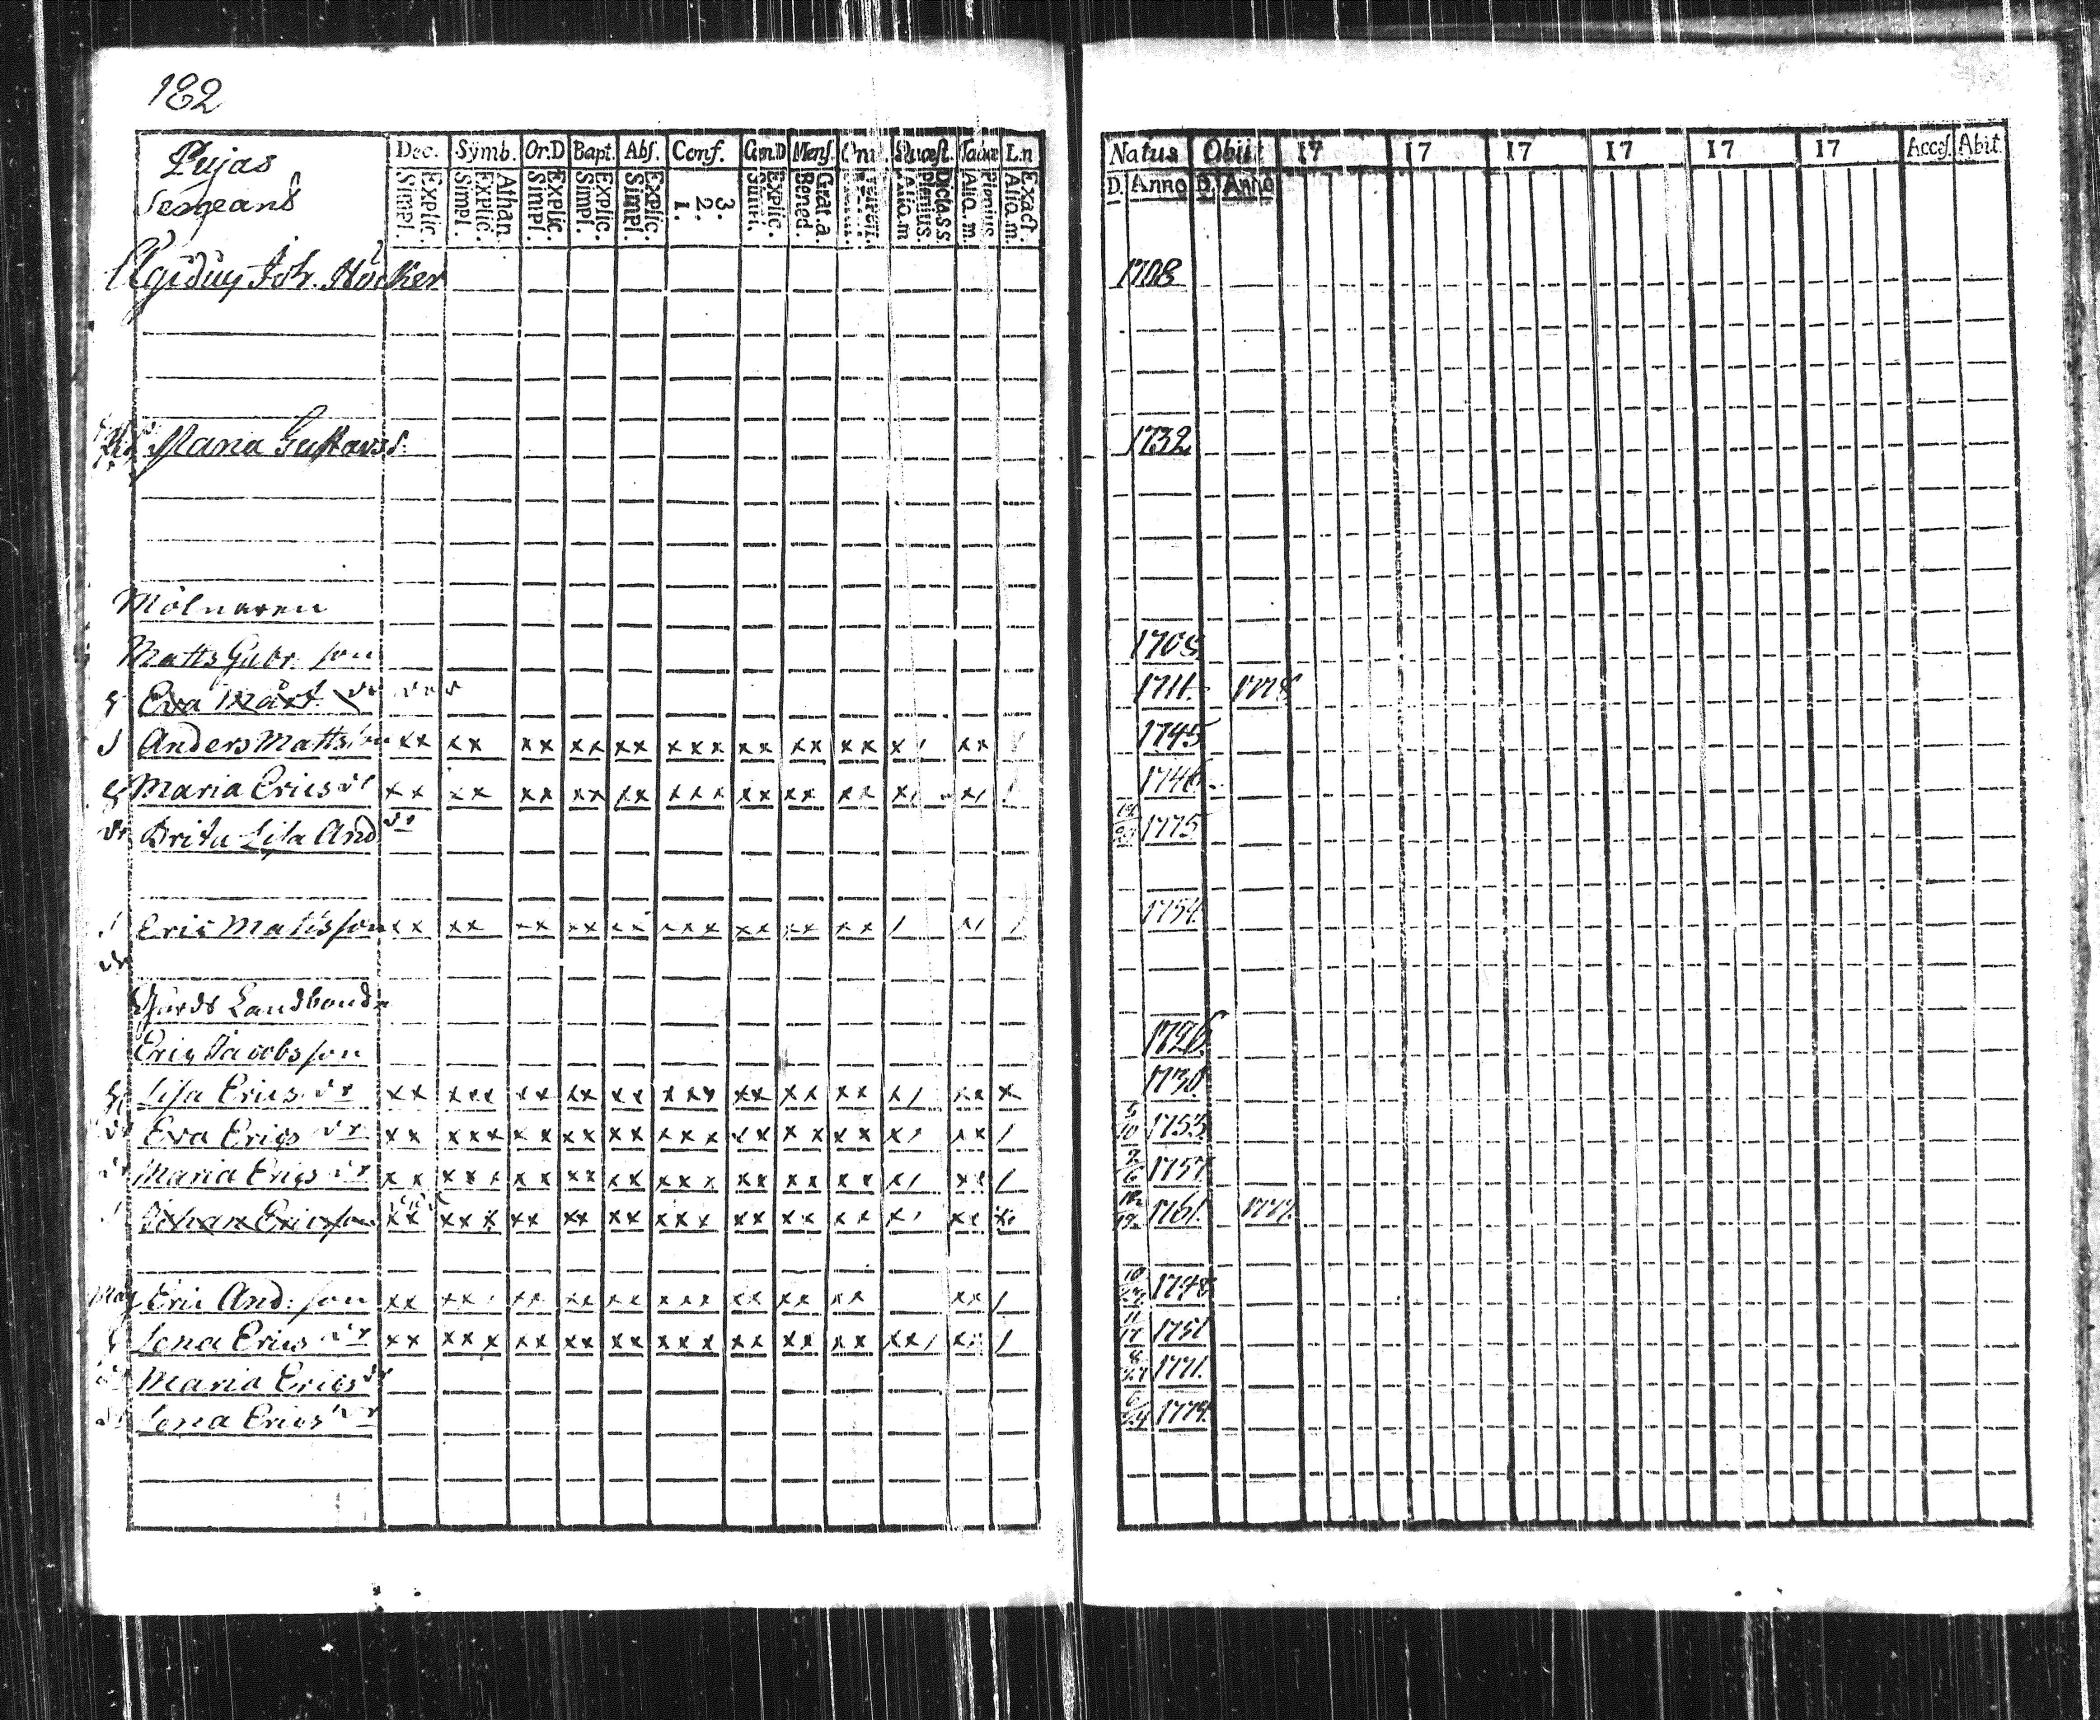 182
Pujas
Sergeant
Dec. Symb. Or.D Bapt. Abs. Conf. Cœn.D Mens. L.n
Explic. Simpl. Athan. Explic. Simpl. Explic. Simpl. Explic. Simpl. Explic. Simpl. 3. 2. 1. Explic. Grat.a. Bened. Exact. Aliq.m.
Natus Obiit 17 17 17 17 17 17 Acces. Abit.
D. Anno D. Anno
Joh. 1708
Maria Gustavs d. 1732
Mölnaren
Matts Gabr. son 1705
Eva Märt dr 1711 1778
Anders Mattsson xx xx xx xx xx xxx xx xx xx x / xx / 1745
Maria Erics dr xx xx xx xx xx xxx xx xx xx x/ x/ / 1746
dr Brita Lisa And dr 1775
Eric Mattsson xx xx xx xx xx xxx xx xx xx / x/ / 1754
dr
Gårds Landbonde
Eric Jacobsson 1726
Lisa Erics dr xx xxx xx xx xx xxx xx xx xx x/ xx x 1730
dr Eva Erics dr xx xxx xx xx xx xxx xx xx xx x/ xx / 5/10 1753
dr Maria Erics dr xx xxx xx xx xx xxx xx xx xx x/ xx / 1757
Johan Ericsson xx xxx xx xx xx xxx xx xx xx x/ xx 1761 1777
Måg Eric And: son xx xx xx xx xx xxx xx xx xx xx / 1748
Lena Erics dr xx xxx xx xx xx xxx xx xx xx xx/ xx / 1751
dr Maria Erics dr 1771
dr Lena Erics dr 1774